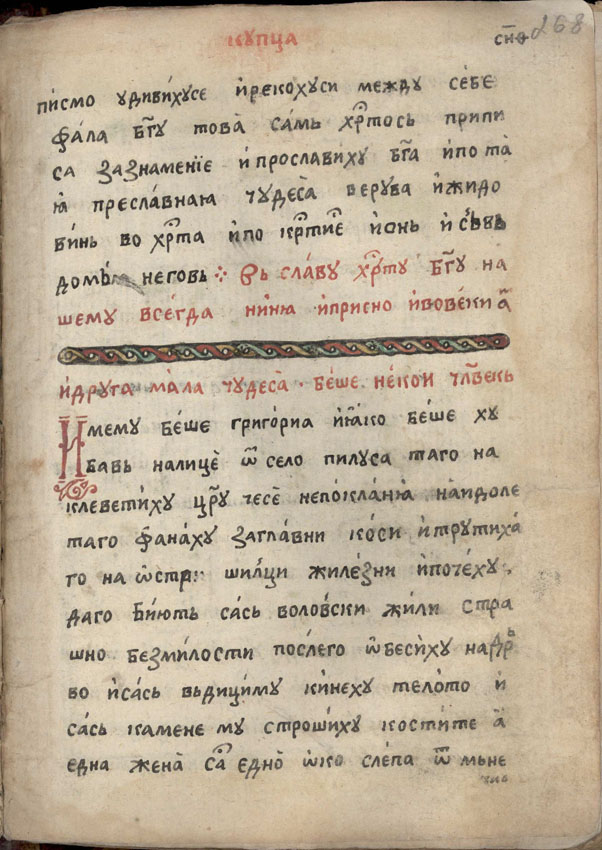 купца
сн҃ѳ 268
пи́смо удиви́хусе ѝрекохуси между се́бе
фа́ла бг҃у това̀ са́мь хр҃тось припи
са зазнаменїе ѝпрослави́ху бг҃а ѝпо та̀
ꙗ̀ пресла́внаю чудеса̀ верува ѝжидо
ви́нь во хр҃та ѝпо кр҃тиє ѝѡнь ѝ
домь̀ неговь ⁘ вь сла́ву хр҃ту бг҃у на
шему все́гда нинꙗ ѝприсно ѝвовеки а҃
ѝдруга ма́ла чудеса̀ · бе́ше не́кои чл҃векь
И́мему бе́ше григориа ѝꙗ̀ко беше ху
бавь налицѐ ѿ село пилуса таго на
клевети́ху цр҃у че́се непокла́нꙗ на́идоле
таго фана́ху загла́вни ко́си ѝтрутиха̀
го на ѡ̀стри ши́лци жиле́зни ѝпоче́ху,
даго бию́ть сась воловски жи́ли стра
шно безми́лости посл́его ѿбеси́ху надр
во ѝса́сь вьдици́му ки́неху тело́то ѝ
са́сь камене му строши́ху кости́те а҆
една жена̀ са една̀ ѡко сле́па ѿ мьне